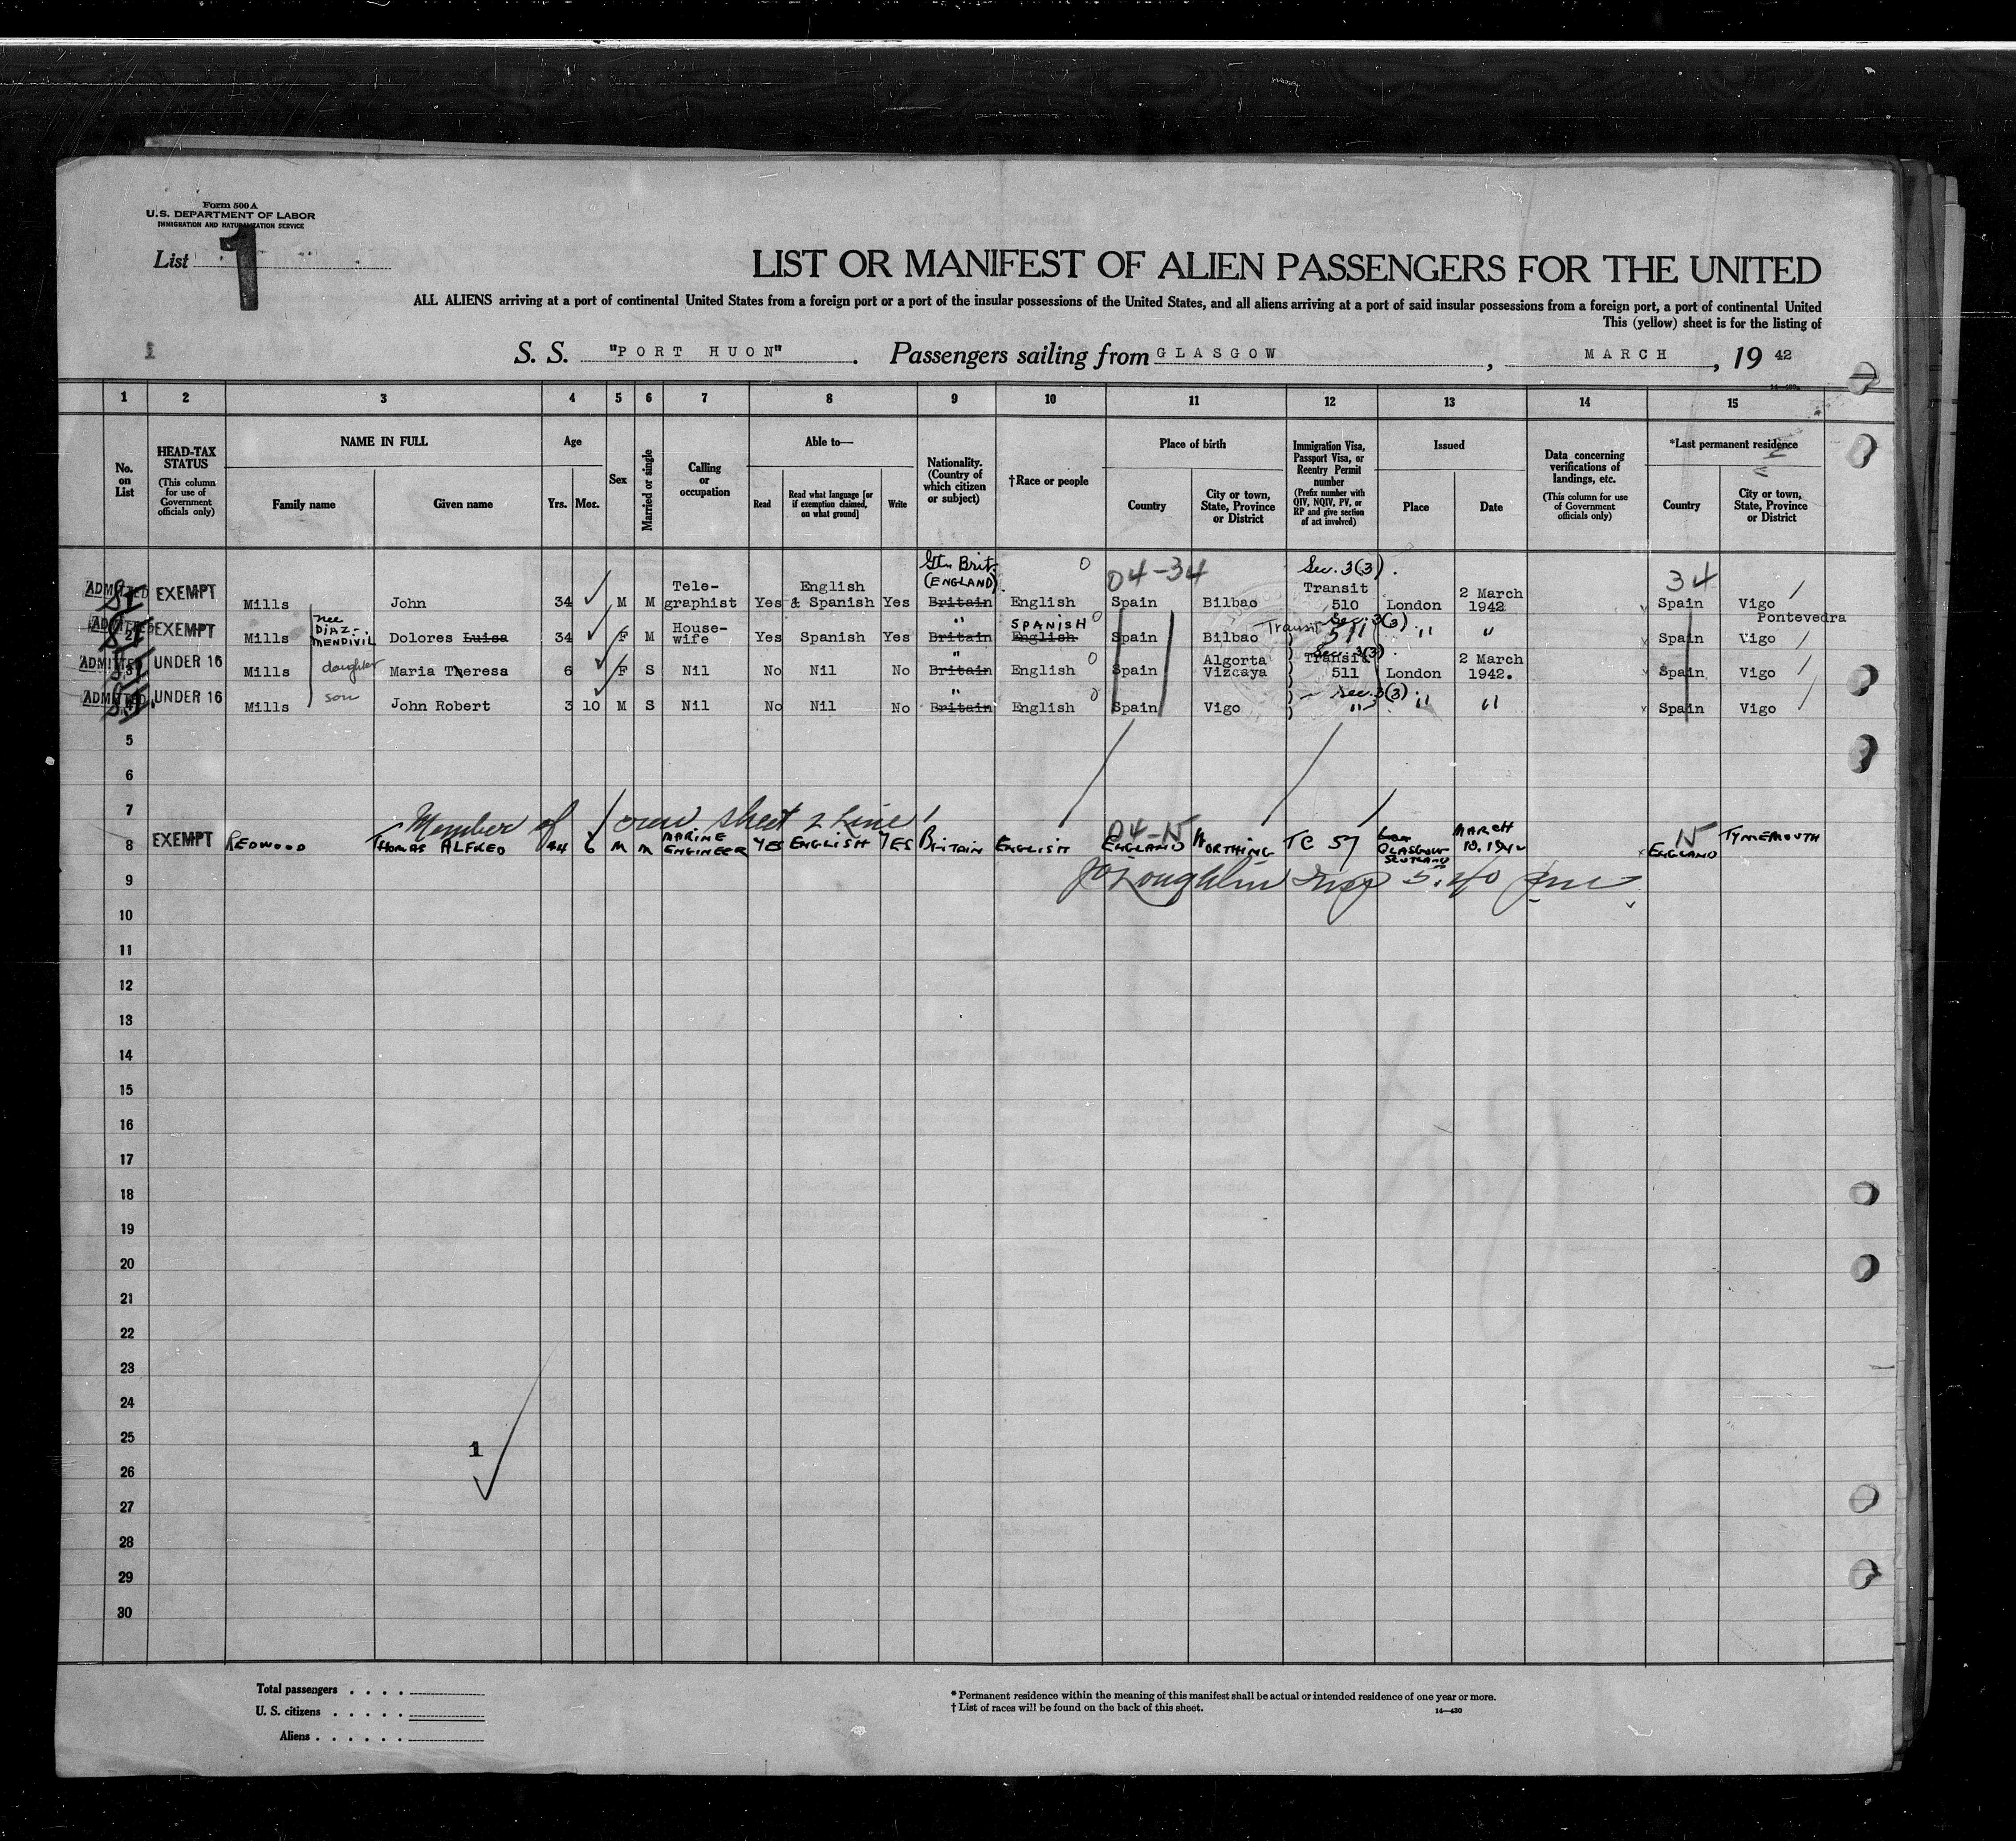 Form 500 A
U.S. DEPARTMENT OF LABOR
IMMIGRATION AND NATURALIZATION SERVICE
List 1
LIST OR MANIFEST OF ALIEN PASSENGERS FOR THE UNITED
ALL ALIENS arriving at a port of continental United States from a foreign port or a port of the insular possessions of the United States, and all aliens arriving at a port of said insular possessions from a foreign port, a port of continental United
This (yellow) sheet is for the listing of
1 S. S. "PORT HUON". Passengers sailing from GLASGOW, MARCH, 19 42
14—430
1 2 3 4 5 6 7 8 9 10 11 12 13 14 15
No. on List
HEAD-TAX STATUS (This column for use of Government officials only)
NAME IN FULL
Family name Given name
Age
Yrs. Mos.
Sex
Married or single
Calling or occupation
Able to—
Read Read what language [or if exemption claimed, on what ground] Write
Nationality. (Country of which citizen or subject)
†Race or people
Place of birth
Country City or town, State, Province or District
Immigration Visa, Passport Visa, or Reentry Permit number (Prefix number with QIV, NQIV, PV, or RP and give section of act involved)
Issued
Place Date
Data concerning verifications of landings, etc. (This column for use of Government officials only)
*Last permanent residence
Country City or town, State, Province or District
ADMITTED EXEMPT Mills John 34 M M Tele-graphist Yes English & Spanish Yes Gt. Brit. (ENGLAND) Britain English 04-34 Spain Bilbao Sec. 3(3). Transit 510 London 2 March 1942 34 Spain Vigo Pontevedra
ADMITTED 2 EXEMPT Mills nee DIAZ-MENDIVIL Dolores Luisa 34 F M House-wife Yes Spanish Yes " Britain SPANISH English Spain Bilbao Transit Sec. 3(3) 511 " " Spain Vigo
ADMITTED 3 UNDER 16 Mills daughter Maria Theresa 6 F S Nil No Nil No " Britain English Spain Algorta Vizcaya Sec. 3(3) Transit 511 London 2 March 1942. Spain Vigo
ADMITTED UNDER 16 Mills son John Robert 3 10 M S Nil No Nil No " Britain English Spain Vigo Sec. 3(3) " " " Spain Vigo
5
6
7 Member of crew sheet 2 Line 1
8 EXEMPT REDWOOD THOMAS ALFRED 44 6 M M MARINE ENGINEER YES ENGLISH YES BRITAIN ENGLISH 04-15 ENGLAND WORTHING TC 57 GLASGOW SCOTLAND MARCH 10. 1942 15 ENGLAND TYNEMOUTH
9 J O'Loughlin Insp 5.40 pm
10
11
12
13
14
15
16
17
18
19
20
21
22
23
24
25 1
26
27
28
29
30
Total passengers . . . .
U. S. citizens . . . . .
Aliens . . . . . .
* Permanent residence within the meaning of this manifest shall be actual or intended residence of one year or more.
† List of races will be found on the back of this sheet.
14—430